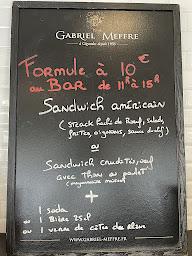 GABRIEL MEFFRE
à Gigondas depuis 1936
Formule à 10€
au BAR de 11h à 15h
Sandwich américain
( Steack haché de Boeuf, salade,
frites, oignons, sauce
ou
Sandwich crudités, oeuf
avec Thon ou poulet
(mayonnaise maison)
+
1 soda
ou 1 Bière 25cl
ou 1 verre de côtes du rhône
WWW.GABRIEL-MEFFRE.FR